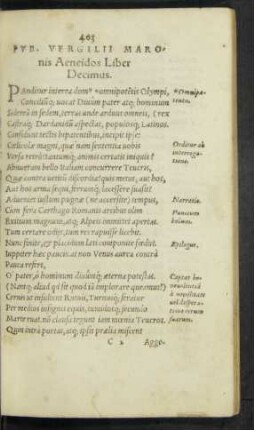 403
PVB. VERGILII MARO-
nis Aeneidos Liber
Decimus.
PAnditur interea domꝰ omnipotētis Olympi,
Conciliūq; uocat Diuûm pater atq; hominum rex
Sideream in sedem, terras unde arduus omneis,
Castraq; Dardanidûm aspectat, populosq; Latinos.
Considunt tectis bipatentibus, incipit ipse:
Coelicolæ magni, quæ nam sententia uobis
Versa retrò, tantumq́; animis certatis iniquis?
Abnueram bello Italiam concurrere Teucris,
Quæ contra uetitū discordia? quis metus, aut hos,
Aut hos arma sequi, ferrumq́; lacessere suasit?
Adueniet iustum pugnæ (ne accersite) tempus,
Cum fera Carthago Romanis arcibus olim
Exitium magnum, atq; Alpeis immittet apertas.
Tum certare odijs, tum res rapuisse licebit.
Nunc sinite, & placidum læti componite fœdus.
Iuppiter hæc paucis, at non Venus aurea contrà
Pauca refert,
O pater, ô hominum diuûmq́; æterna potestas.
(Nanq; aliud qd sit quod iā implorare queamus?)
Cernis ut insultent Rutuli, Turnusq́; feratur
Per medios insignis equis, tumidusq́; secundo
Marte ruat: nō clausa tegunt iam mœnia Teucros
Quin intra portas, atq; ipsis prælia miscent
C 2
Agge-
Narratio.
Epilogus.